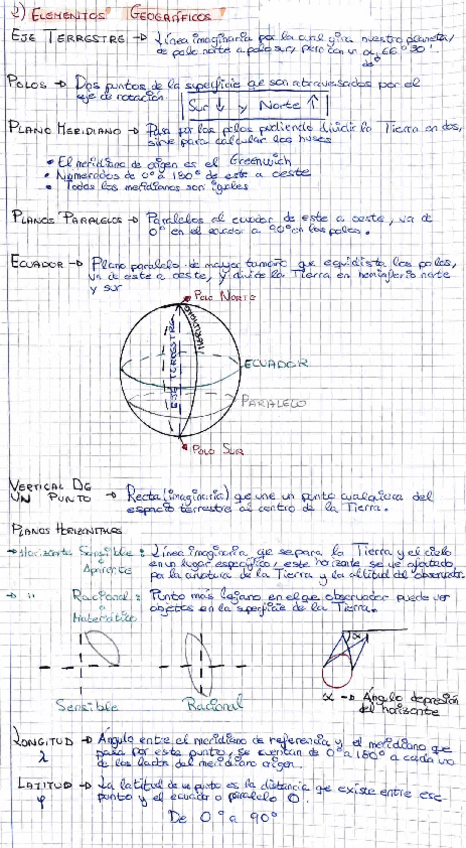 2) ELEMENTOS GEOGRÁFICOS
EJE TERRESTRE → Línea imaginaria por la cual gira nuestro planeta,
de polo norte a polo sur, pero con un α 66°30'
POLOS → Dos puntos de la superficie que son atravesados por el
eje de rotación
Sur ↓ y Norte ↑
PLANO MERIDIANO → Pasa por los polos pudiendo dividir la Tierra en dos,
sirve para calcular los husos
• El meridiano de origen es el Greenwich
• Numerados de 0° a 180° de este a oeste
• Todos los meridianos son iguales
PLANOS PARALELOS → Paralelos al ecuador de este a oeste, va de
0° en el ecuador a 90° en los polos.
ECUADOR → Plano paralelo de mayor tamaño que equidista los polos,
va de este a oeste, y divide la Tierra en hemisferio norte
y sur
POLO NORTE
MERIDIANO
EJE TERRESTRE
ECUADOR
PARALELO
POLO SUR
VERTICAL DE
UN PUNTO → Recta (imaginaria) que une un punto cualquiera del
espacio terrestre al centro de la Tierra.
PLANOS HORIZONTALES
→ Horizonte Sensible : Línea imaginaria que separa la Tierra y el cielo
o Aparente en un lugar específico, este horizonte se ve afectado
por la curvatura de la Tierra y la altitud del observador
→ " Racional : Punto más lejano en el que observador puede ver
o Matemático objetos en la superficie de la Tierra.
Sensible
Racional
α
α → Ángulo depresión
del horizonte
LONGITUD → Ángulo entre el meridiano de referencia y el meridiano que
λ pasa por este punto, se cuentan de 0° a 180° a cada uno
de los lados del meridiano origen.
LATITUD → La latitud de un punto es la distancia que existe entre ese
φ punto y el ecuador o paralelo 0.
De 0° a 90°